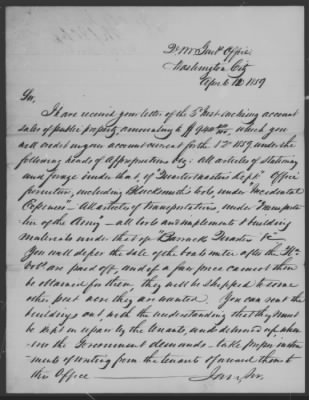 Qr Mr Genl's Office
Washington City
April 12 1859
Sir,
I have received your letter of the 5th inst. enclosing account
sales of public property, amounting to $940, which you
will credit in your account current for the 1st 1859 under the
following heads of Appropriations viz: All articles of stationery
and forage under that of Quartermasters Dept. Office
furniture, including Blacksmiths tools, under "Incidental
Expenses" All articles of Transportation, under "Transporta-
tion of the Army" all tools and implements & building
materials under that of "Barracks Quarters &c"
You will defer the sale of the boats until after the
are paid off, and if a fair price cannot then
be obtained for them, they will be shipped to some
other post where they are wanted. You can rent the
buildings out with the understanding that they must
be kept in repair by the tenants, and delivered up, when-
ever the Government demands - take proper instru-
ments of writing from the tenants & forward them to
this Office
I am, Sir,